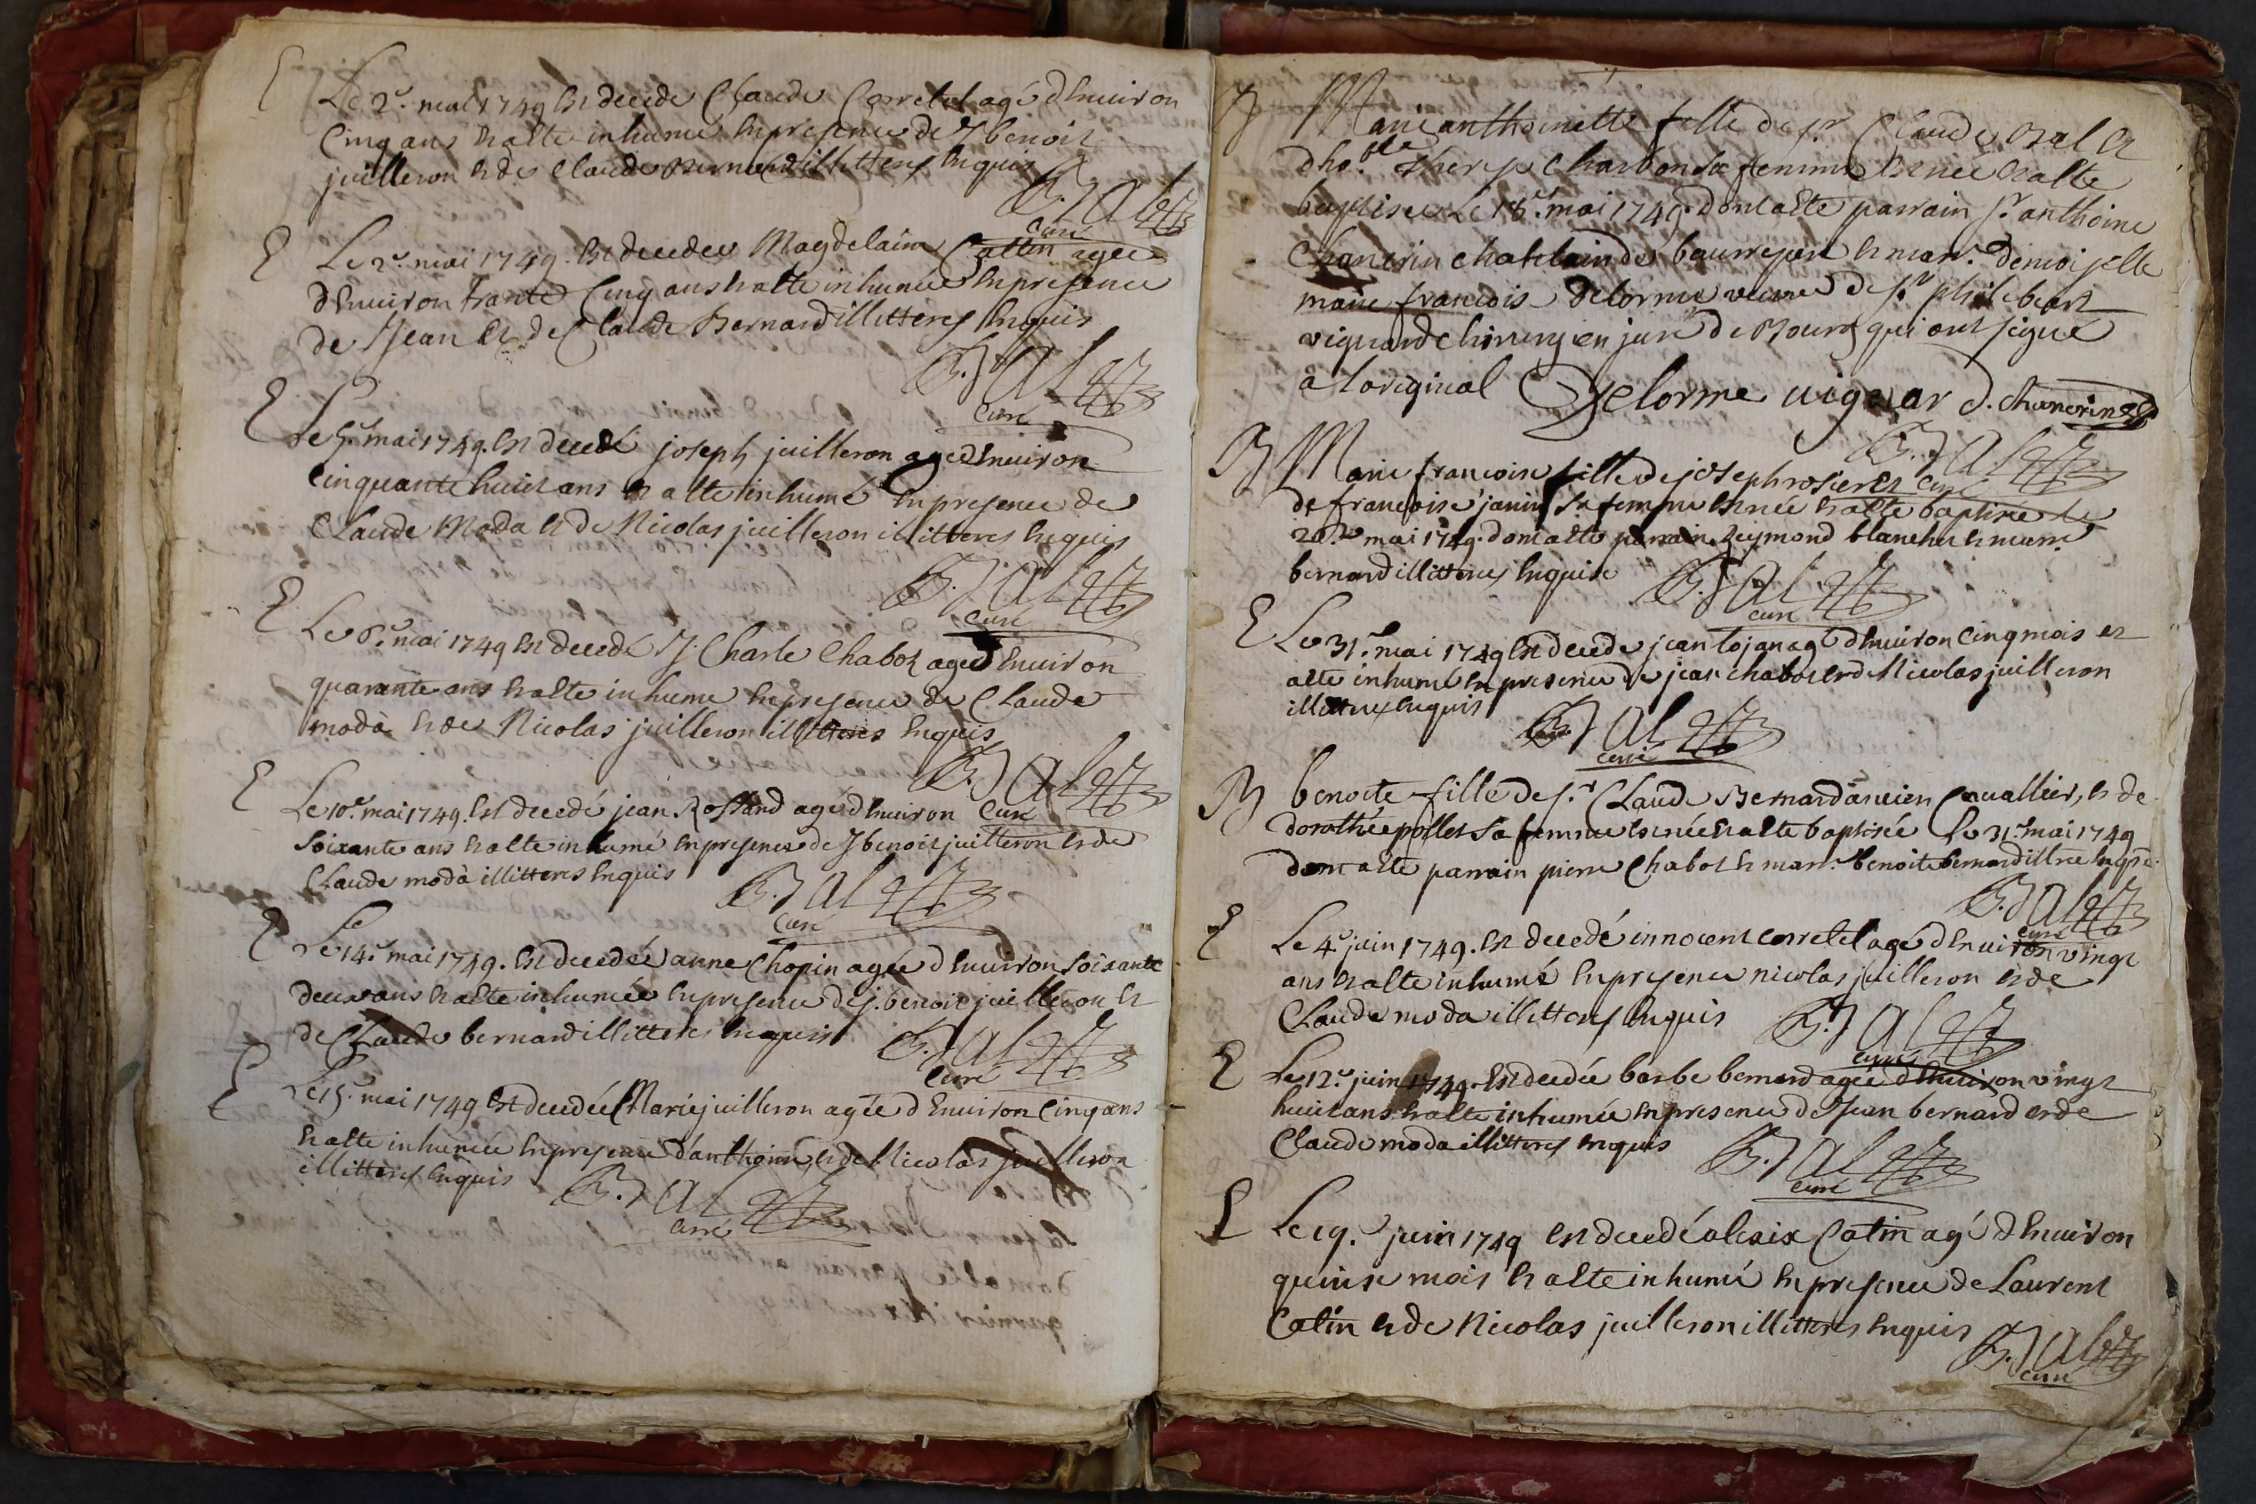 E Le 2e. mai 1749 est decede Claude Corretel agé d'environ
cinq ans et a été inhumé en presence de J benoit
juilleron et de Claude Bernard illitteres enquis
B. Jal
curé
E Le 2e. mai 1749. est decedee Magdelaine Cattin agee
d'environ trante cinq ans et a été inhumée en presence
de Jean et de Claude Bernard illitteres enquis
B. Jal
curé
E Le 5e. mai 1749. est decedé joseph juilleron agé d'environ
cinquante huict ans et a été inhumé en presence de
Claude Moda et de Nicolas juilleron illitteres enquis
B. Jal
curé
E Le 6e. mai 1749 est decedé J. Charle Chabot agé d'environ
quarante ans et a été inhumé en presence de Claude
moda et de Nicolas juilleron illitteres enquis
B. Jal
curé
E Le 10e. mai 1749. est decedé jean Rossand agé d'environ
soixante ans et a été inhumé en presence de J benoit juilleron et de
Claude moda illitteres enquis
B. Jal
curé
E Le 14e. mai 1749. est decedée anne Chopin agée d'environ soixante
deux ans et a été inhumée en presence de j. benoit juilleron et
de Claude bernard illitteres enquis
B. Jal
curé
E Le 15. mai 1749 est decedée Marie juilleron agée d'environ cinq ans
et a été inhumée en presence d'anthoine et de Nicolas juilleron
illitteres enquis
B. Jal
curé
B Marie anthoinette fille de sr Claude et
d'hoble. Charbon sa femme est née et a été
baptisée Le 18e. mai 1749. dont a été parrain sr. anthoine
Chancrin chatelain de beaurepaire et marr. demoiselle
marie francois delorme veuve de sr. philebert
vignard chirurgien juré de Bourg qui ont signé
a l'original Delorme vignar d. chancrin
B. Jal
curé
B Marie francoise fille de joseph rosier et
de francoise janin sa femme est née et a été baptisée le
mai 1749. dont a été parrain Reymond blanchet et marr.
bernard illitteres enquise
B. Jal
curé
E Le 31e. mai 1749 est decede jean agé d'environ cinq mois et
a été inhumé en presence de jean chabot et de Nicolas juilleron
illitteres enquis
B. Jal
curé
B benoite fille de sr. Claude Bernard ancien Cavallier, et de
dorothée pollet sa femme est née et a été baptisée le 31e. mai 1749
dont a été parrain pierre Chabot et marr. benoite bernard
B. Jal
curé
E Le 4e. juin 1749. est decedé innocent corretel agé d'environ vingt
ans et a été inhumé en presence nicolas juilleron et de
Claude moda illitteres enquis
B. Jal
curé
E Le 12e. juin 1749. est decedée barbe bernard agée d'environ vingt
huict ans et a été inhumée en presence de Jean bernard et de
Claude moda illitteres enquis
B. Jal
curé
E Le 19. juin 1749 est decedé alexix Catin agé d'environ
quinse mois et a été inhumé en presence de Laurent
Catin et de Nicolas juilleron illitteres enquis
B. Jal
curé